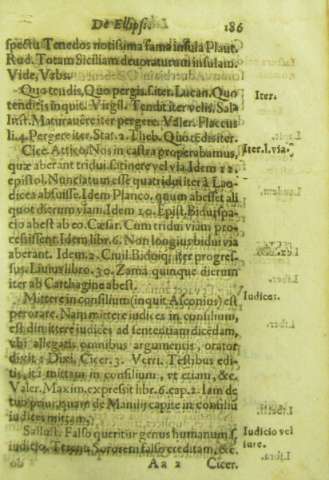 De Ellipsi. 186
spectu Tenedos notissima fama insula Plaut.
Rud. Totam Siciliam deuoraturum insulam.
Vide, Vrbs.
Quo tendis, Quo pergis. s. iter. Lucan. Quo
tenditis inquit. Virgil. Tendit iter velis, Sal
lust. Maturauere iter pergere. Valer. Flaccus
li. 4. Pergere iter. Stat. 2. Theb. Quo tedis iter.
Iter.
Cice. Attico. Nos in castra properabamus,
quæ aberant tridui. s. itinere vel via Idem 12.
Iter. l. via.
epistol. Nunciatum esse quatridui iter à Lao
dicea abfuisse. Idem Planco. quum abesset ali
quot dierum viam. Idem 10. Epist. Biduispa-
cio abest ab eo. Cæsar. Cum tridui viam pro-
cessissent. Idem libr. 6. Non longius bidui via
aberant. Idem. 2. Ciuil. Bidui iter progres-
sus. Liuius libro. 30. Zama quinque dierum
iter ab Carthagine abest.
Mittere in consilium (inquit Asconius) est
Iudices.
perorare. Nam mittere iudices in consilium,
est dimittere iudices ad sententiam dicēdam,
vbi allegatis omnibus argumentis, orator
dixit: Dixi. Cicer. 3. Verri. Testibus edi-
tis, ita mittam in consilium, vt etiam, &c.
Valer. Maxim. expressit libr. 6. cap. 2. Iam de
tuo prius, quam de Manilij capite in consiliū
iudices mittam,
Sallust. Falso queritur genus humanum s,
iudicio. Terent. Sororem falso creditam, &c.
Iudicio vel
iure.
Aa 2 Cicer.